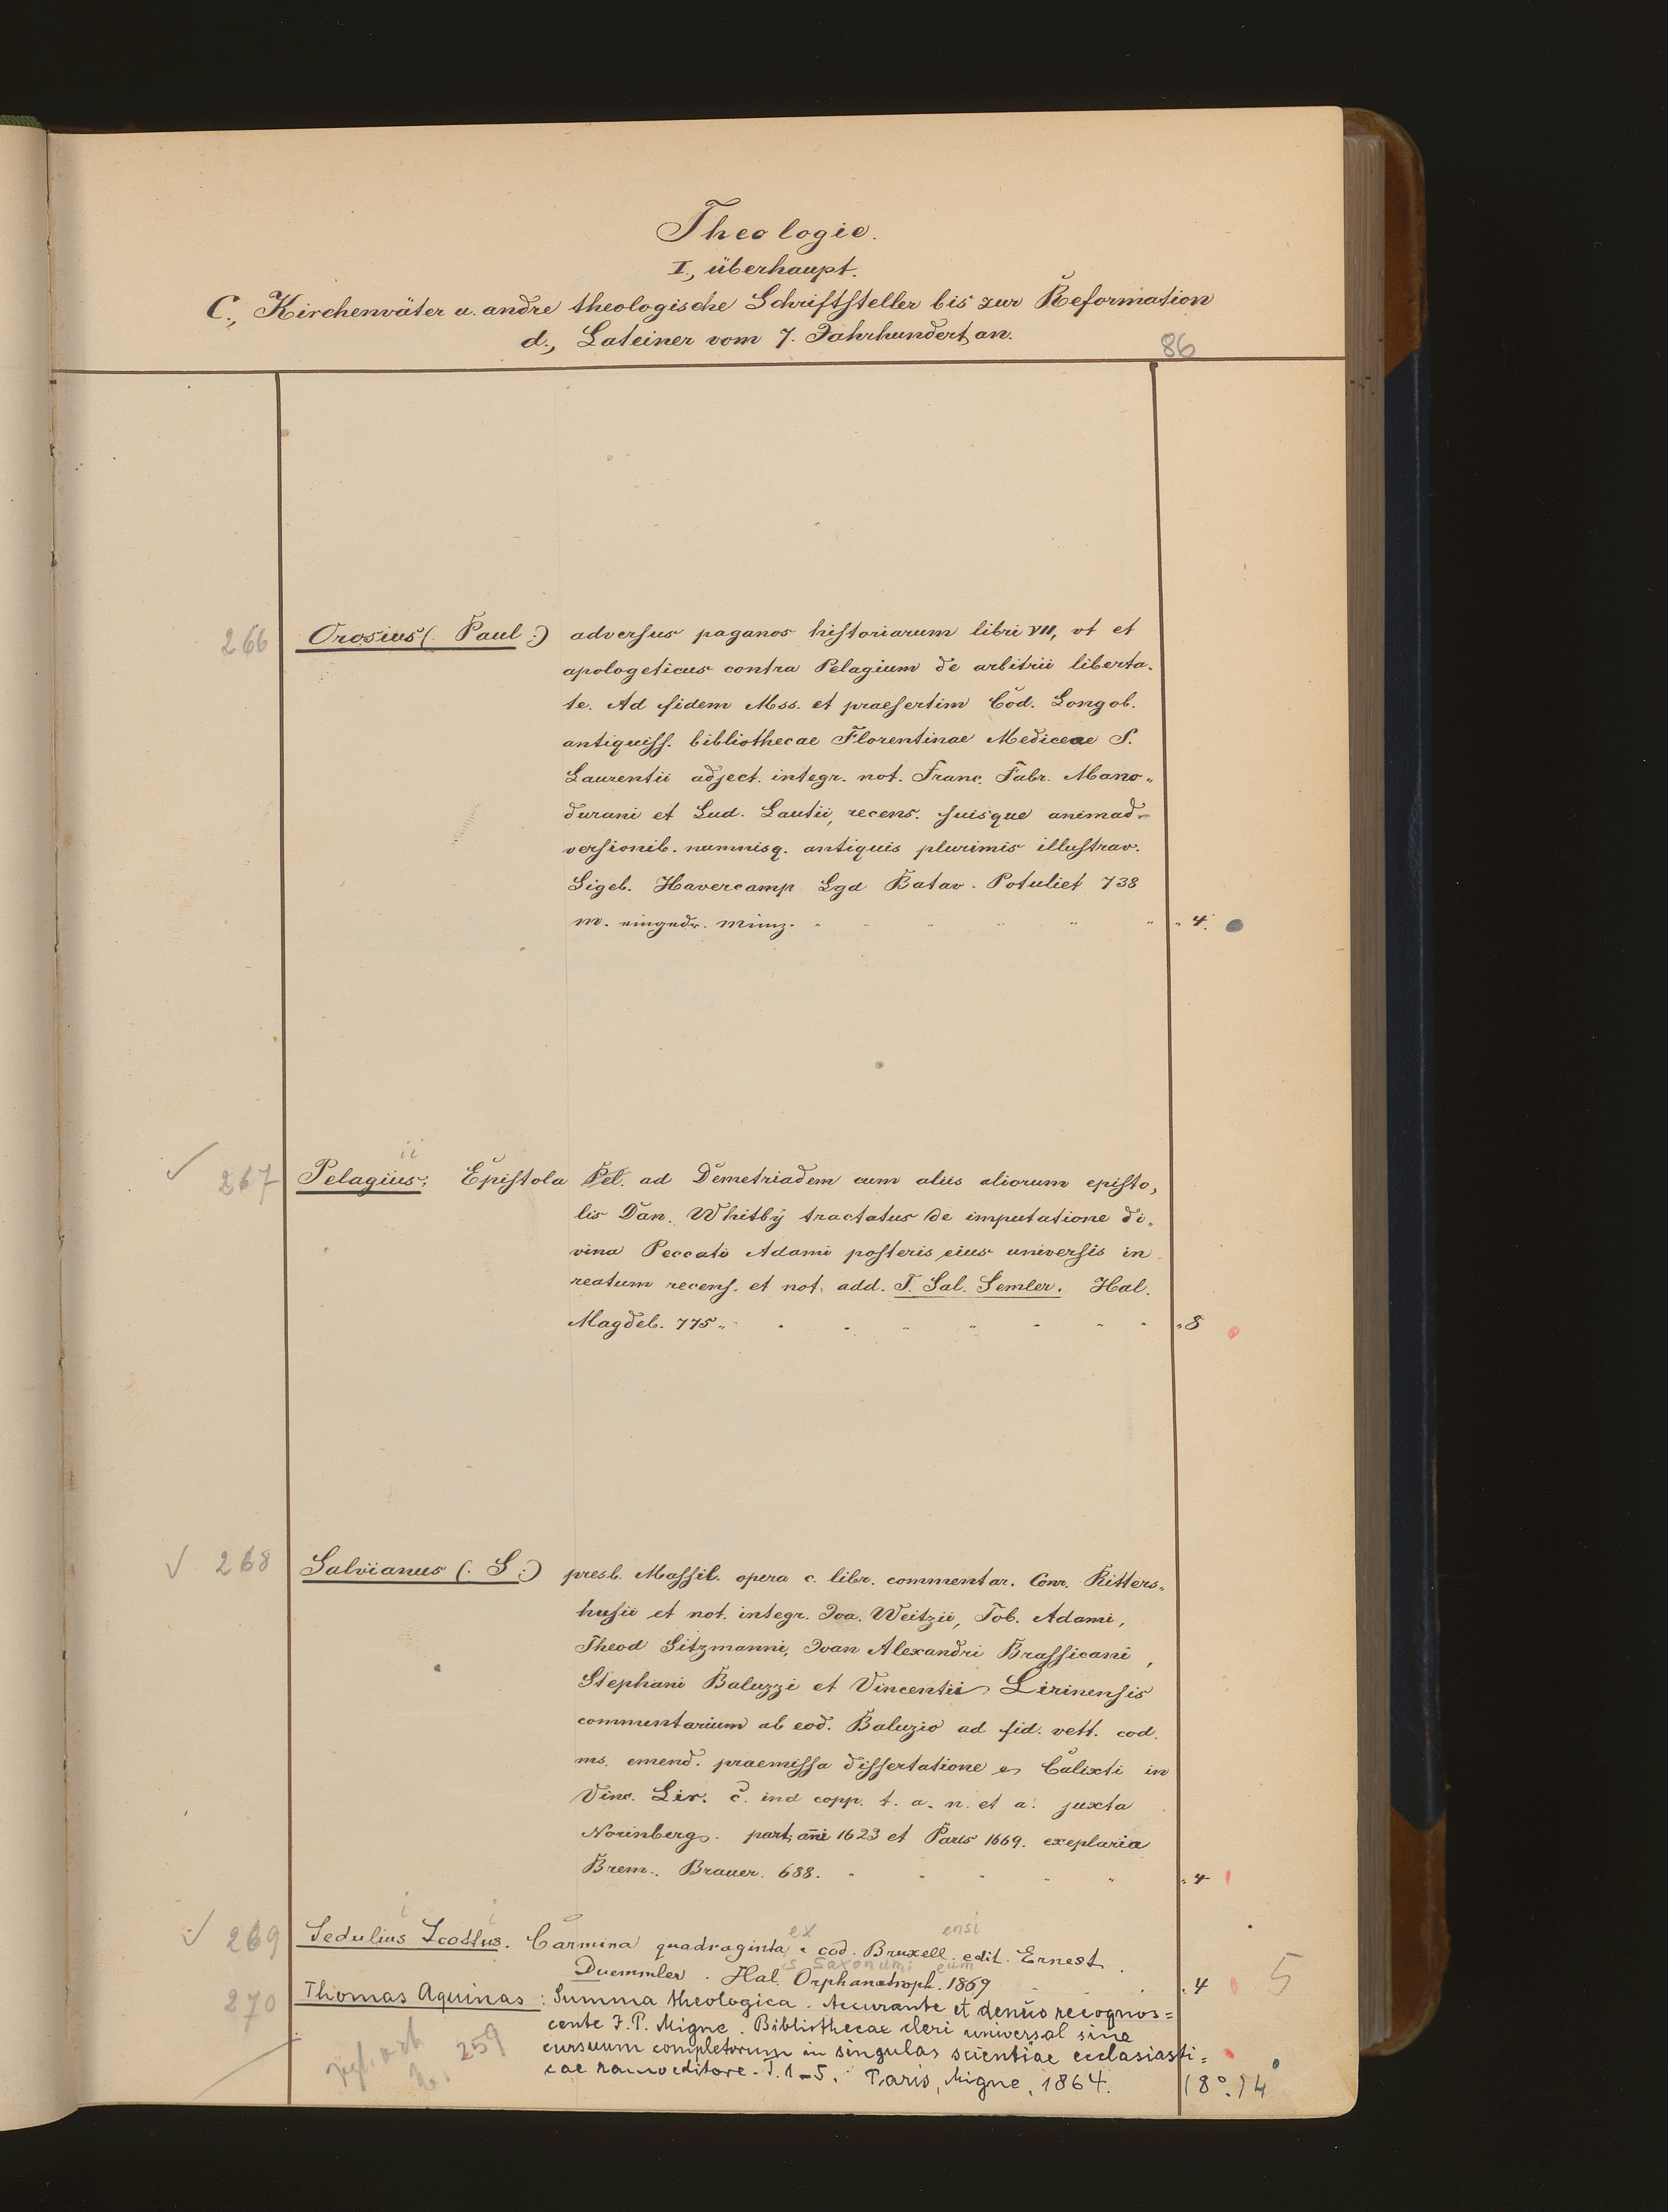 Theologie.
I., überhaupt.
C., Kirchenväter u. andre theologische Schriftsteller bis zur Reformation
d., Lateiner vom 7. Jahrhundert an.
86
266 Orosius (: Paul :) adversus paganos historiarum libri VII, ut et
apologeticus contra Pelagium de arbitrii liberta-
te. Ad fidem Mss. et praesertim Cod. Longob.
antiquiss. bibliothecae Florentinae Mediceae S.
Laurentii adject. integr. not. Franc. Fabr. Mano-
durani et Lud. Lautii, recens. suisque animad-
versionib. numnisq. antiquis plurimis illustrav.
Sigeb. Havercamp Lgd Batav. Potuliet 738
m. eingedr. Münz. " 4.
ii
267 Pelagius: Epistola Pel. ad Demetriadem cum aliis aliorum episto-
lis Dan. Whitby tractatus de imputatione di-
vina Peccati Adami posteris eius universis in
reatum recens. et not. add. J. Sal. Semler. Hal.
Magdeb. 775. " 8
268 Salvianus (: S :) presb. Massil. opera c. libr. commentar. Conr. Ritters-
husii et not. integr. Joa. Weitzii, Tob. Adami,
Theod Sitzmanni, Joan Alexandri Brassicani,
Stephani Baluzzi et Vincentii Lirinensis
commentarium ab eod. Baluzio ad fid. vett. cod.
ms. emend. praemissa dissertatione Calixti in
Vinc. Lir. c. ind copp. t. a. n. et a. juxta
Norinberg. part. ani 1623 et Paris 1669. exeplaria
Brem. Brauer. 688. " 4
i i ex ensi
269 Sedulius Scottus. Carmina quadraginta e cod. Bruxell. edit. Ernest.
is Saxonum: eum
Duemmler. Hal. Orphanotroph. 1869 " 4 5
270 Thomas Aquinas: Summa theologica. Accurante et denuo recognos=
cente J. P. Migne. Bibliothecae cleri universal sive
cursuum completorum in singulas scientiae ecclasiasti=
259
cae ramo editore. T. 1-5. Paris, Migne, 1864. (8°.) 4°